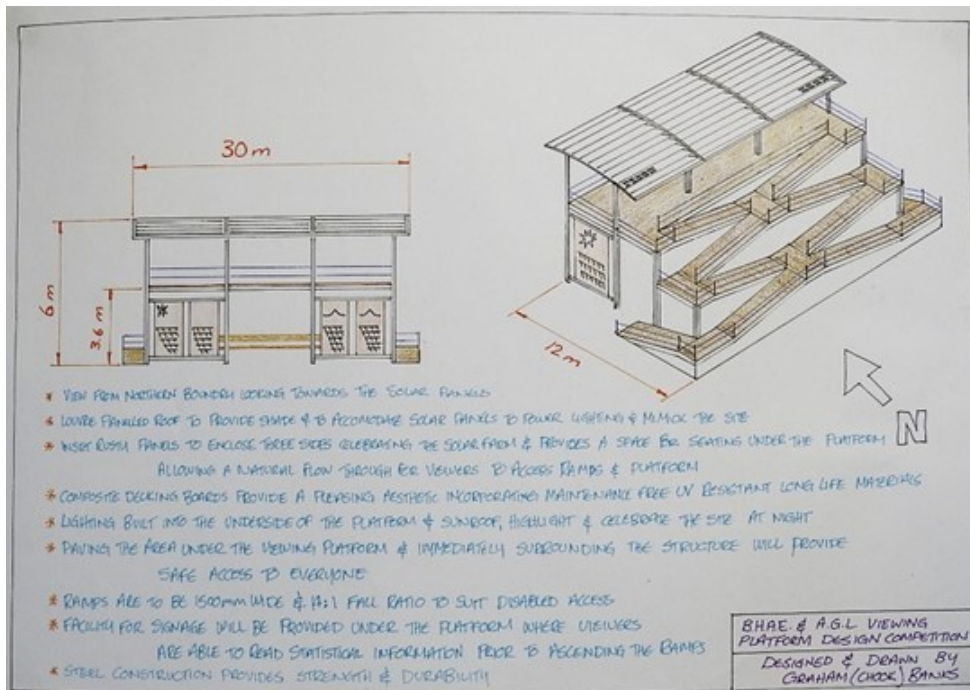 30 m
6 m
3.6 m
12 m
N
* VIEW FROM NORTHERN BOUNDRY LOOKING TOWARDS THE SOLAR PANELS
* LOUVRE PANELLED ROOF TO PROVIDE SHADE & TO ACCOMODATE SOLAR PANELS TO POWER LIGHTING & MIMICK THE SITE
* INSET RUSTY PANELS TO ENCLOSE THREE SIDES CELEBRATING THE SOLAR FARM & PROVIDES A SPACE FOR SEATING UNDER THE PLATFORM
ALLOWING A NATURAL FLOW THROUGH FOR VIEWERS TO ACCESS RAMPS & PLATFORM
* COMPOSITE DECKING BOARDS PROVIDE A PLEASING AESTHETIC INCORPORATING MAINTENANCE FREE UV RESISTANT LONG LIFE MATERIALS
* LIGHTING BUILT INTO THE UNDERSIDE OF THE PLATFORM & SUNROOF, HIGHLIGHT & CELEBRATE THE SITE AT NIGHT
* PAVING THE AREA UNDER THE VIEWING PLATFORM & IMMEDIATELY SURROUNDING THE STRUCTURE WILL PROVIDE
SAFE ACCESS TO EVERYONE
* RAMPS ARE TO BE 1500mm WIDE & 14:1 FALL RATIO TO SUIT DISABLED ACCESS
* FACILITY FOR SIGNAGE WILL BE PROVIDED UNDER THE PLATFORM WHERE VIEWERS
ARE ABLE TO READ STATISTICAL INFORMATION PRIOR TO ASCENDING THE RAMPS
* STEEL CONSTRUCTION PROVIDES STRENGTH & DURABILITY
B.H.A.E. & A.G.L VIEWING
PLATFORM DESIGN COMPETITION
DESIGNED & DRAWN BY
GRAHAM (CHOOK) BANKS